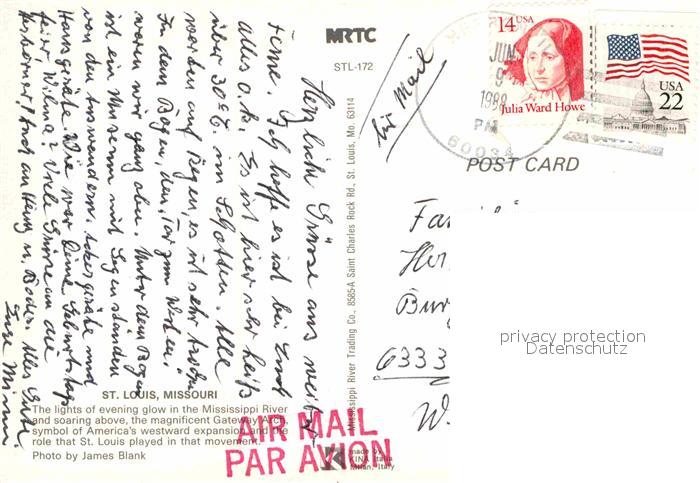 MRTC
STL-172
Air Mail
14 USA
Julia Ward Howe
USA
22
JUN
9
1988
PM
POST CARD
Herzliche Grüsse aus weiter
Ferne. Ich hoffe es ist bei Euch
alles o.k. Es ist hier sehr heiß
über 30°C im Schatten. Alle
warten auf Regen, es ist sehr trocken
In dem Bogen, den „Tor zum Westen"
waren wir ganz oben. Unter dem Bogen
ist ein Museum mit Gegenständen
von den Auswanderern, Ackergeräte und
Hausgeräte. Wie war Deine Geburtstags
feier Wilma? Viele Grüsse an die
Auch an Heinz u. Boden. Alles Gute
Eure Mimi
Mississippi River Trading Co., 8585-A Saint Charles Rock Rd., St. Louis, Mo. 63114
Fa
Her
Bur
6333
W.
privacy protection
Datenschutz
ST. LOUIS, MISSOURI
The lights of evening glow in the Mississippi River
and soaring above, the magnificent Gateway Arch,
symbol of America's westward expansion and the
role that St. Louis played in that movement.
Photo by James Blank
AIR MAIL
PAR AVION
made by
KINA Italia
Milan, Italy